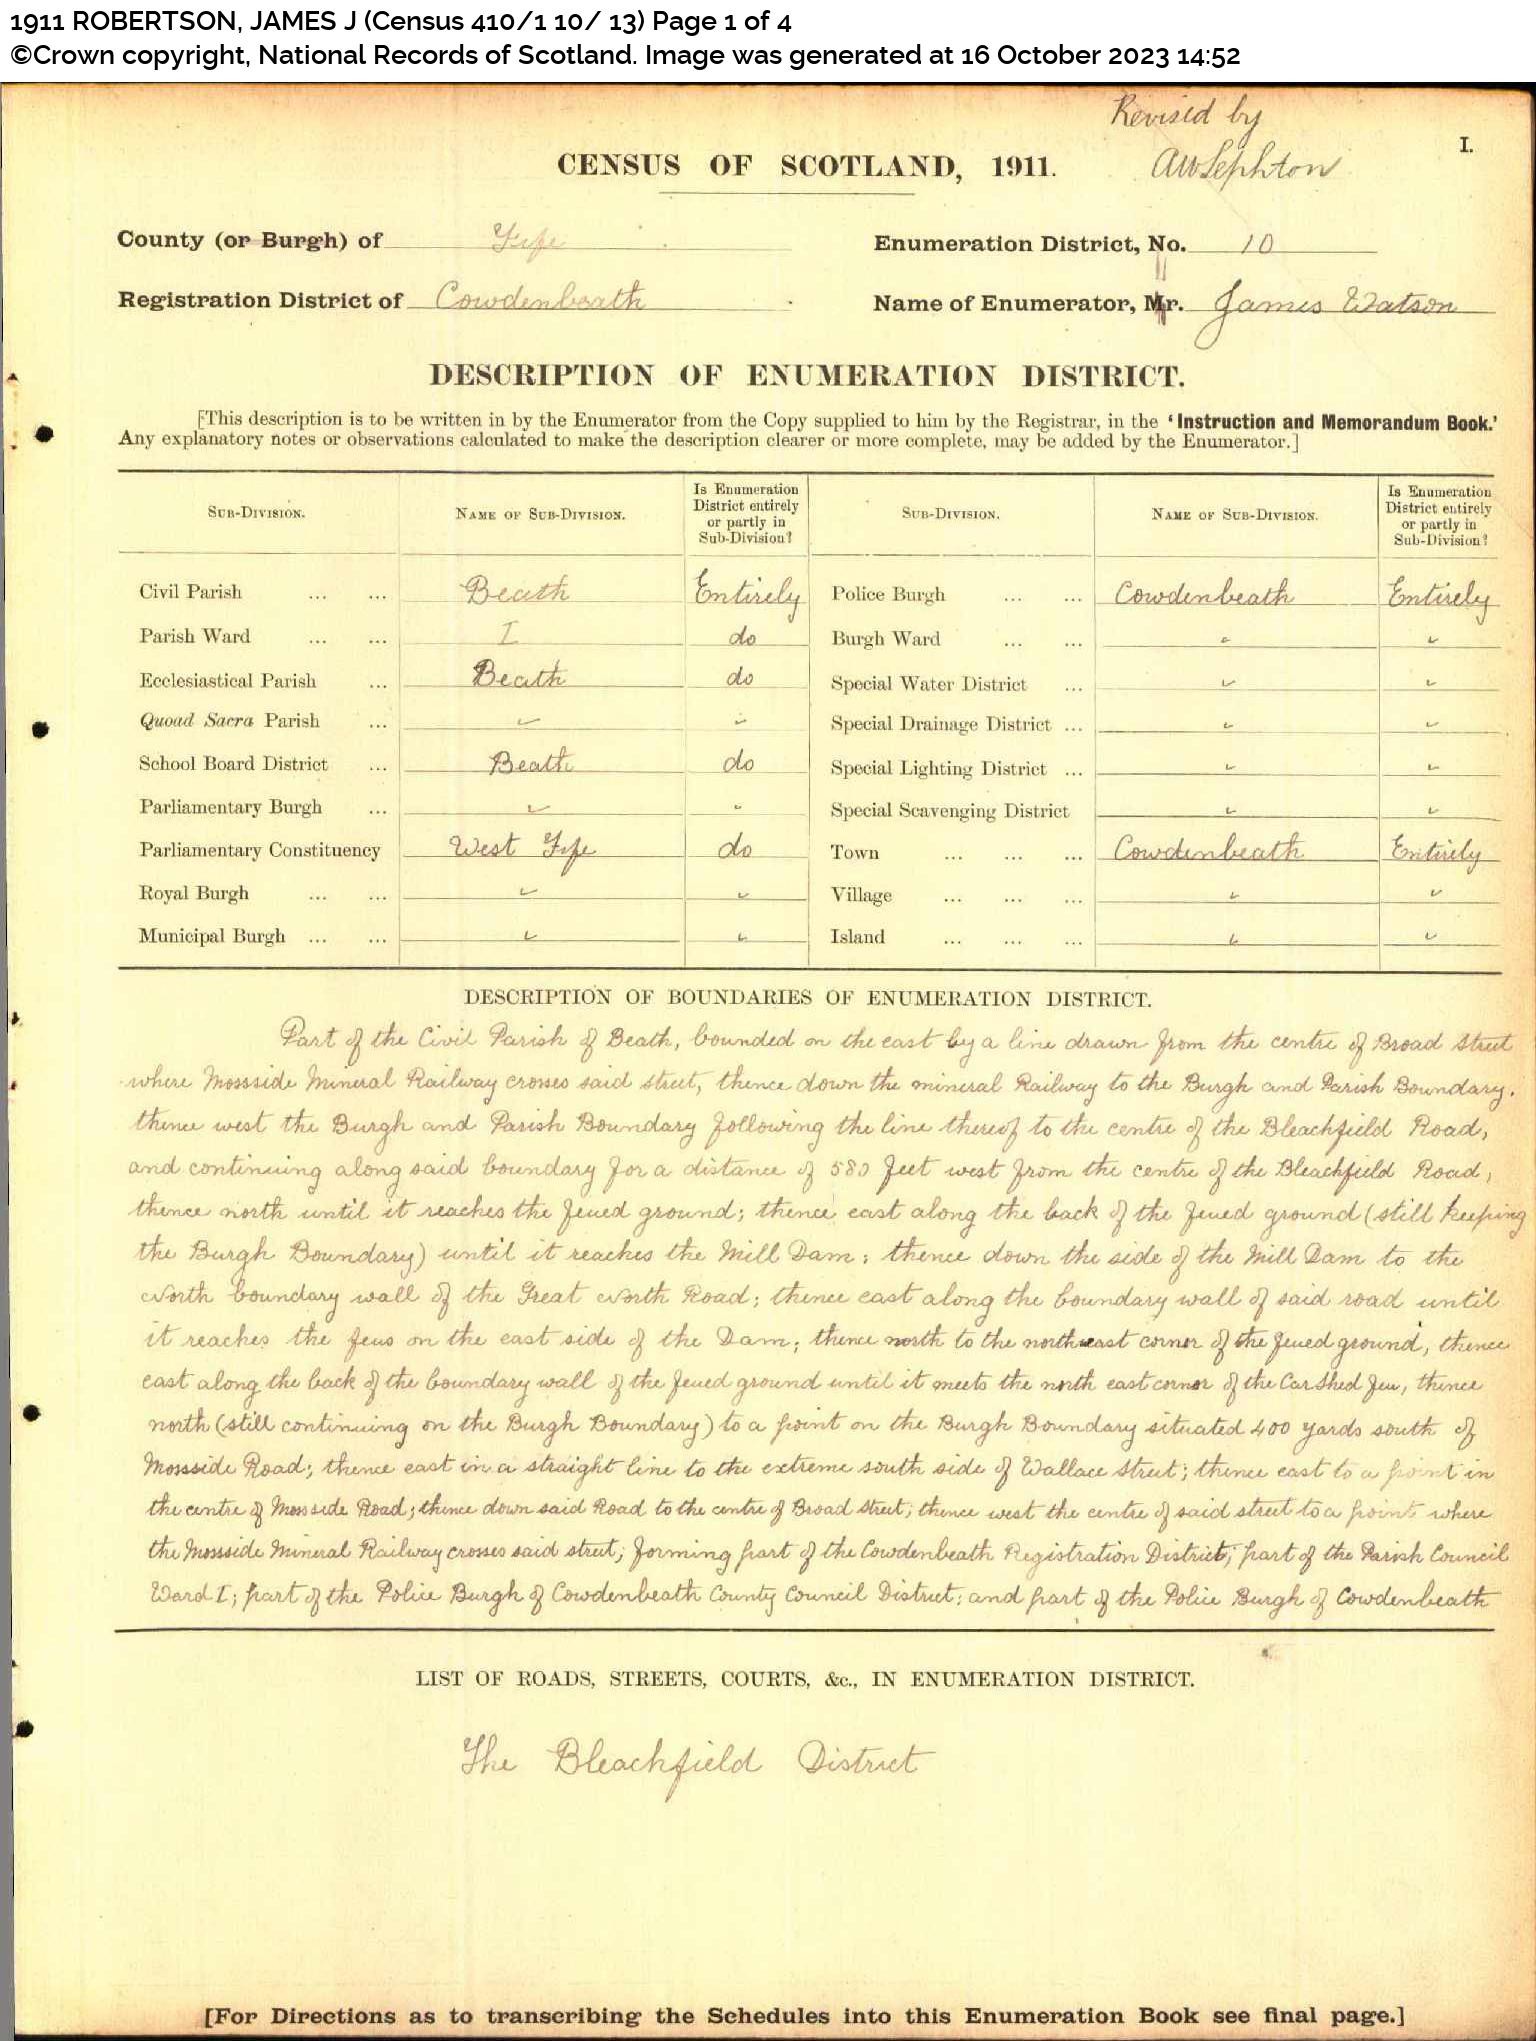 1911 ROBERTSON, JAMES J (Census 410/1 10/ 13) Page 1 of 4
©Crown copyright, National Records of Scotland. Image was generated at 16 October 2023 14:52
Revised by
AWSephton
I.
CENSUS OF SCOTLAND, 1911.
County (or Burgh) of Fife
Enumeration District, No. 10
Registration District of Cowdenbeath
Name of Enumerator, Mr. James Watson
DESCRIPTION OF ENUMERATION DISTRICT.
[This description is to be written in by the Enumerator from the Copy supplied to him by the Registrar, in the 'Instruction and Memorandum Book.'
Any explanatory notes or observations calculated to make the description clearer or more complete, may be added by the Enumerator.]
SUB-DIVISION. NAME OF SUB-DIVISION. Is Enumeration District entirely or partly in Sub-Division? SUB-DIVISION. NAME OF SUB-DIVISION. Is Enumeration District entirely or partly in Sub-Division?
Civil Parish ... ... Beath Entirely Police Burgh ... ... Cowdenbeath Entirely
Parish Ward ... ... I do Burgh Ward ... ... " "
Ecclesiastical Parish ... Beath do Special Water District ... " "
Quoad Sacra Parish ... " " Special Drainage District ... " "
School Board District ... Beath do Special Lighting District ... " "
Parliamentary Burgh ... " " Special Scavenging District " "
Parliamentary Constituency West Fife do Town ... ... ... Cowdenbeath Entirely
Royal Burgh ... ... " " Village ... ... ... " "
Municipal Burgh ... ... " " Island ... ... ... " "
DESCRIPTION OF BOUNDARIES OF ENUMERATION DISTRICT.
Part of the Civil Parish of Beath, bounded on the east by a line drawn from the centre of Broad Street
where Mossside Mineral Railway crosses said street, thence down the mineral Railway to the Burgh and Parish Boundary.
thence west the Burgh and Parish Boundary following the line thereof to the centre of the Bleachfield Road,
and continuing along said boundary for a distance of 580 feet west from the centre of the Bleachfield Road,
thence north until it reaches the feued ground; thence east along the back of the feued ground (still keeping
the Burgh Boundary) until it reaches the Mill Dam; thence down the side of the Mill Dam to the
North boundary wall of the Great North Road; thence east along the boundary wall of said road until
it reaches the feus on the east side of the Dam; thence north to the north east corner of the feued ground, thence
east along the back of the boundary wall of the feued ground until it meets the north east corner of the Car Shed feu, thence
north (still continuing on the Burgh Boundary) to a point on the Burgh Boundary situated 400 yards south of
Mossside Road; thence east in a straight line to the extreme south side of Wallace Street; thence east to a point in
the centre of Mossside Road; thence down said Road to the centre of Broad Street; thence west the centre of said street to a point where
the Mossside Mineral Railway crosses said street; forming part of the Cowdenbeath Registration District; part of the Parish Council
Ward I; part of the Police Burgh of Cowdenbeath County Council District; and part of the Police Burgh of Cowdenbeath
LIST OF ROADS, STREETS, COURTS, &c., IN ENUMERATION DISTRICT.
The Bleachfield District
[For Directions as to transcribing the Schedules into this Enumeration Book see final page.]